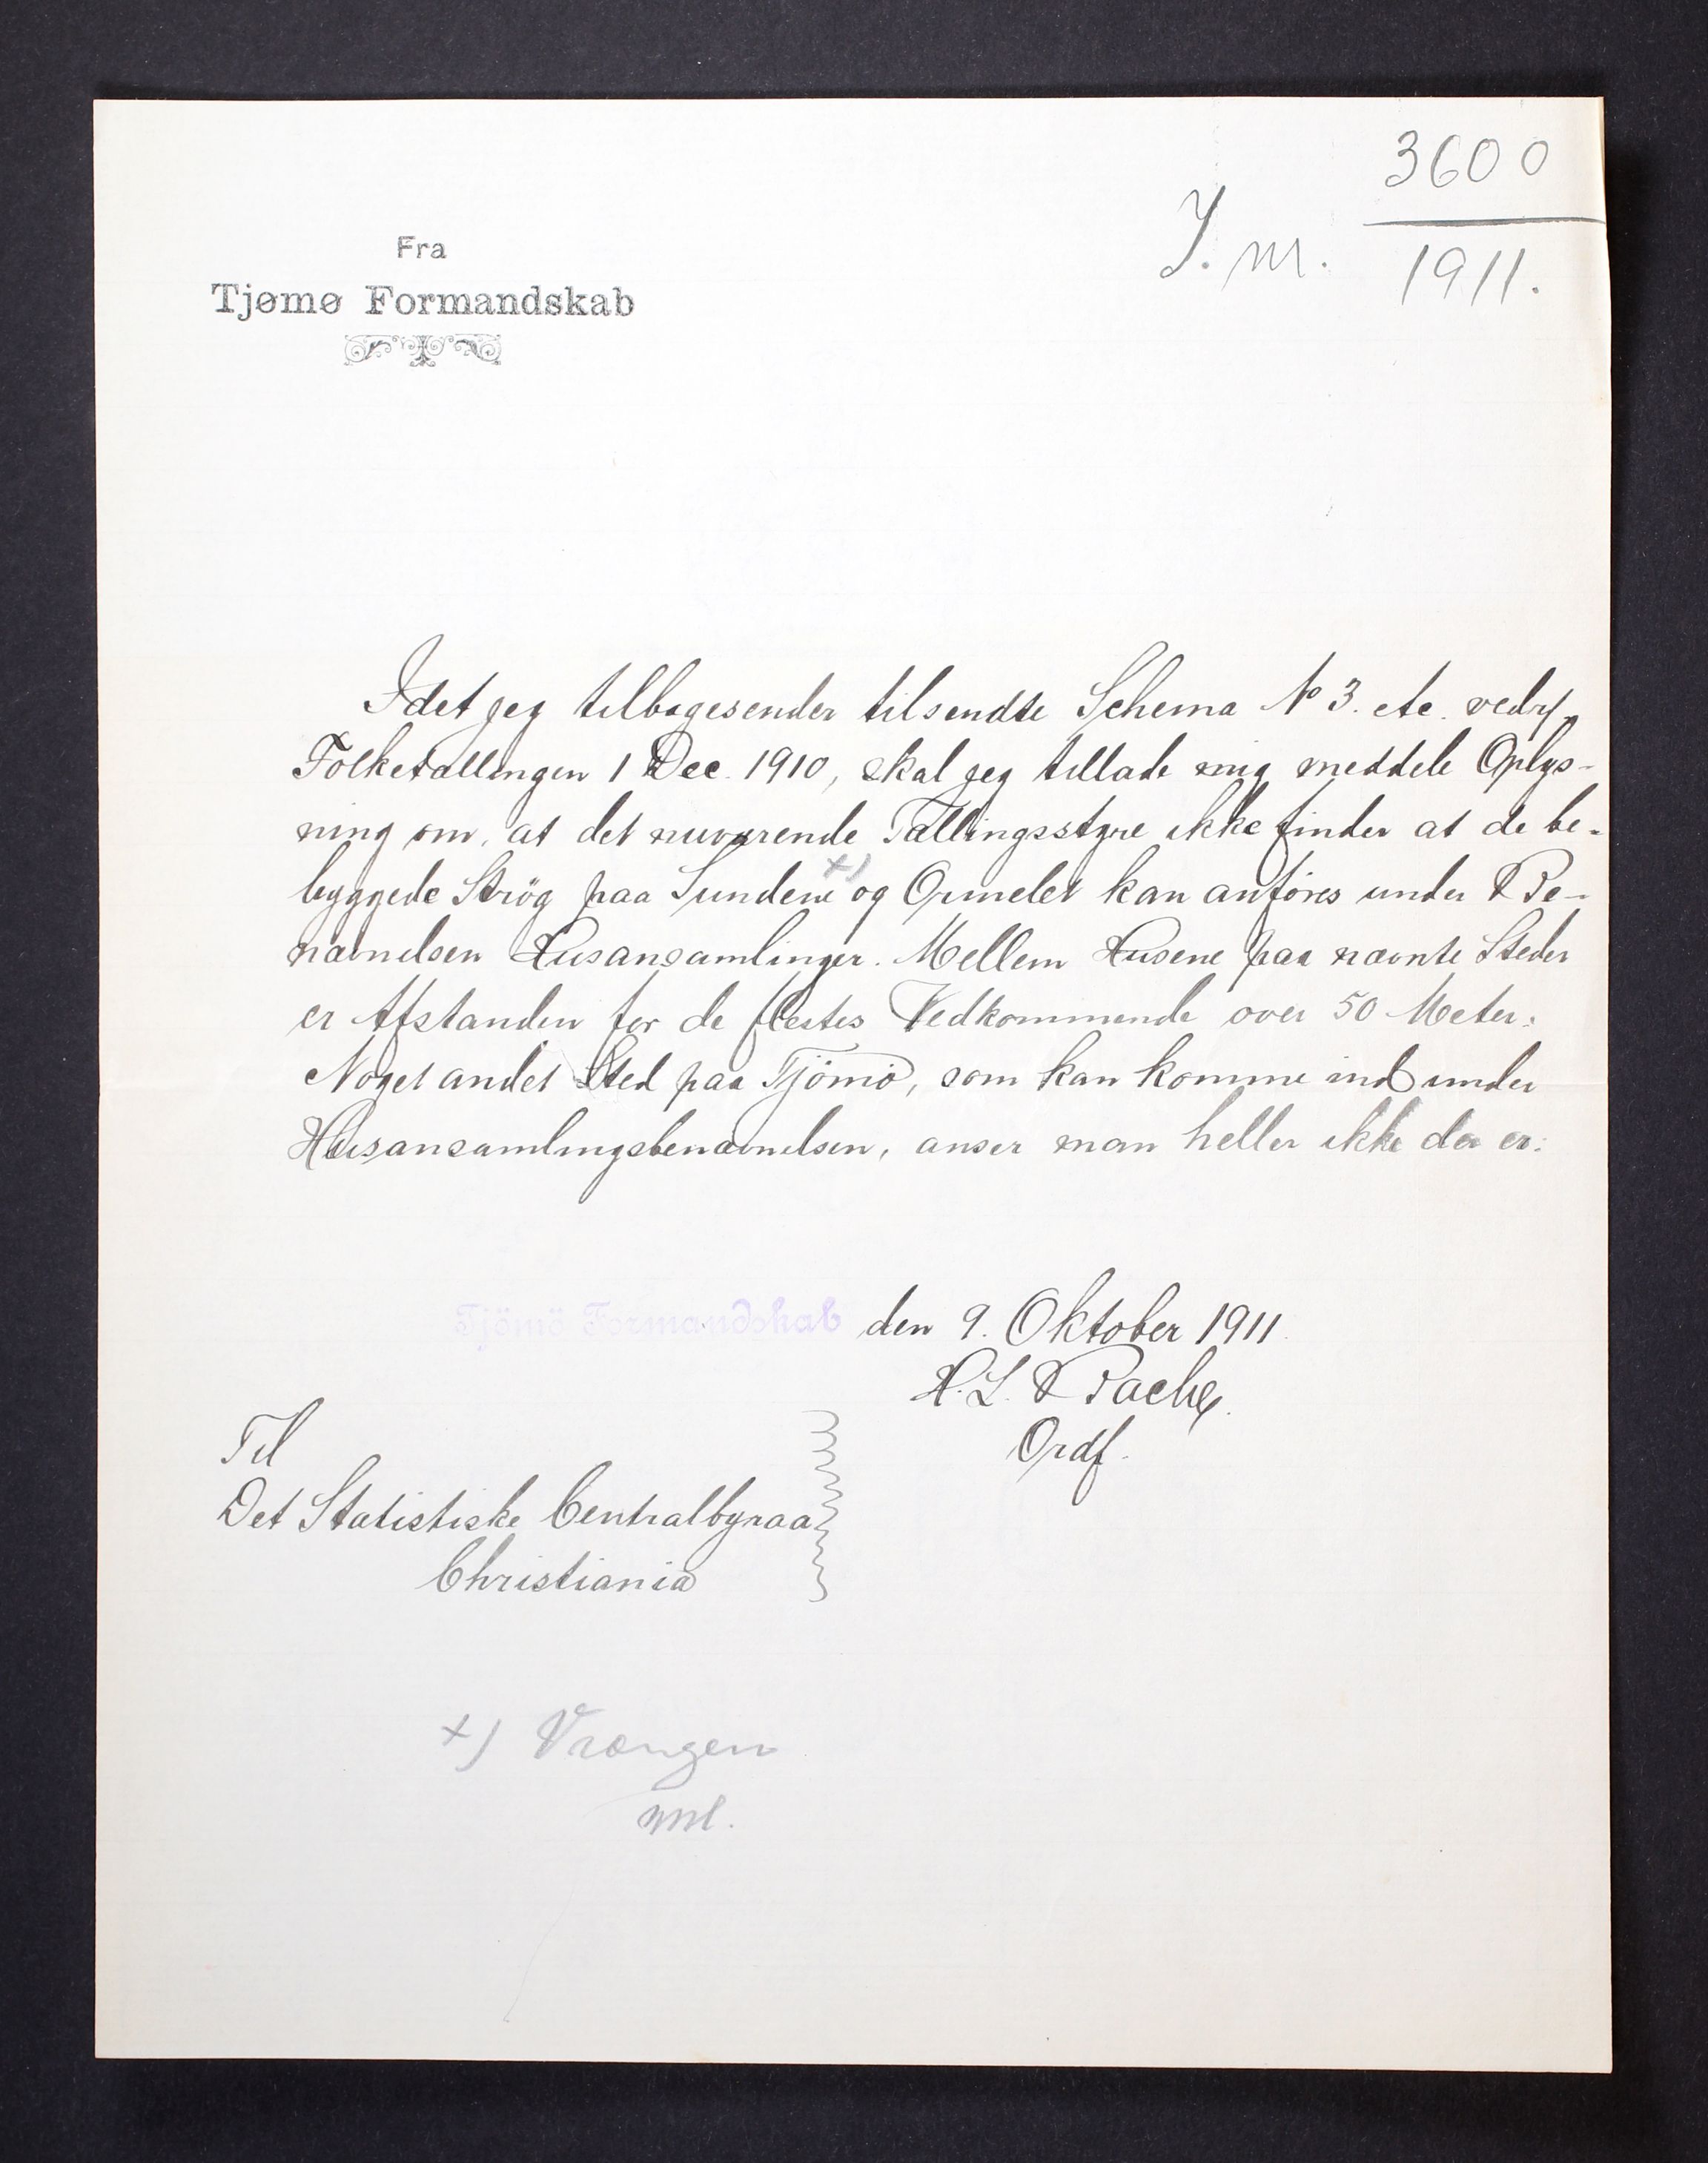 3600
J. nr. 1911.
Fra
Tjømø Formandskab
Idet jeg tilbagesender tilsendte Schema No 3. etc. vedr.
Folketællingen 1 Dec. 1910, skal jeg tillade mig meddele Oplys-
ning om, at det nuværende Tællingsstyre ikke finder at de be-
byggede Strög paa Sundene x) og Ormelet kan anföres under Be-
nævnelsen Husansamlinger. Mellem Husene paa nævnte Steder
er Afstanden for de flestes Vedkommende over 50 Meter.
Noget andet Sted paa Tjömö, som kan komme ind under
Husansamlingsbenævnelsen, anser man heller ikke der er.
Tjömö Formandskab den 9. Oktober 1911.
H. L. Bache
Ordf.
Til
Det Statistiske Centralbyraa
Christiania
x) Vrængen